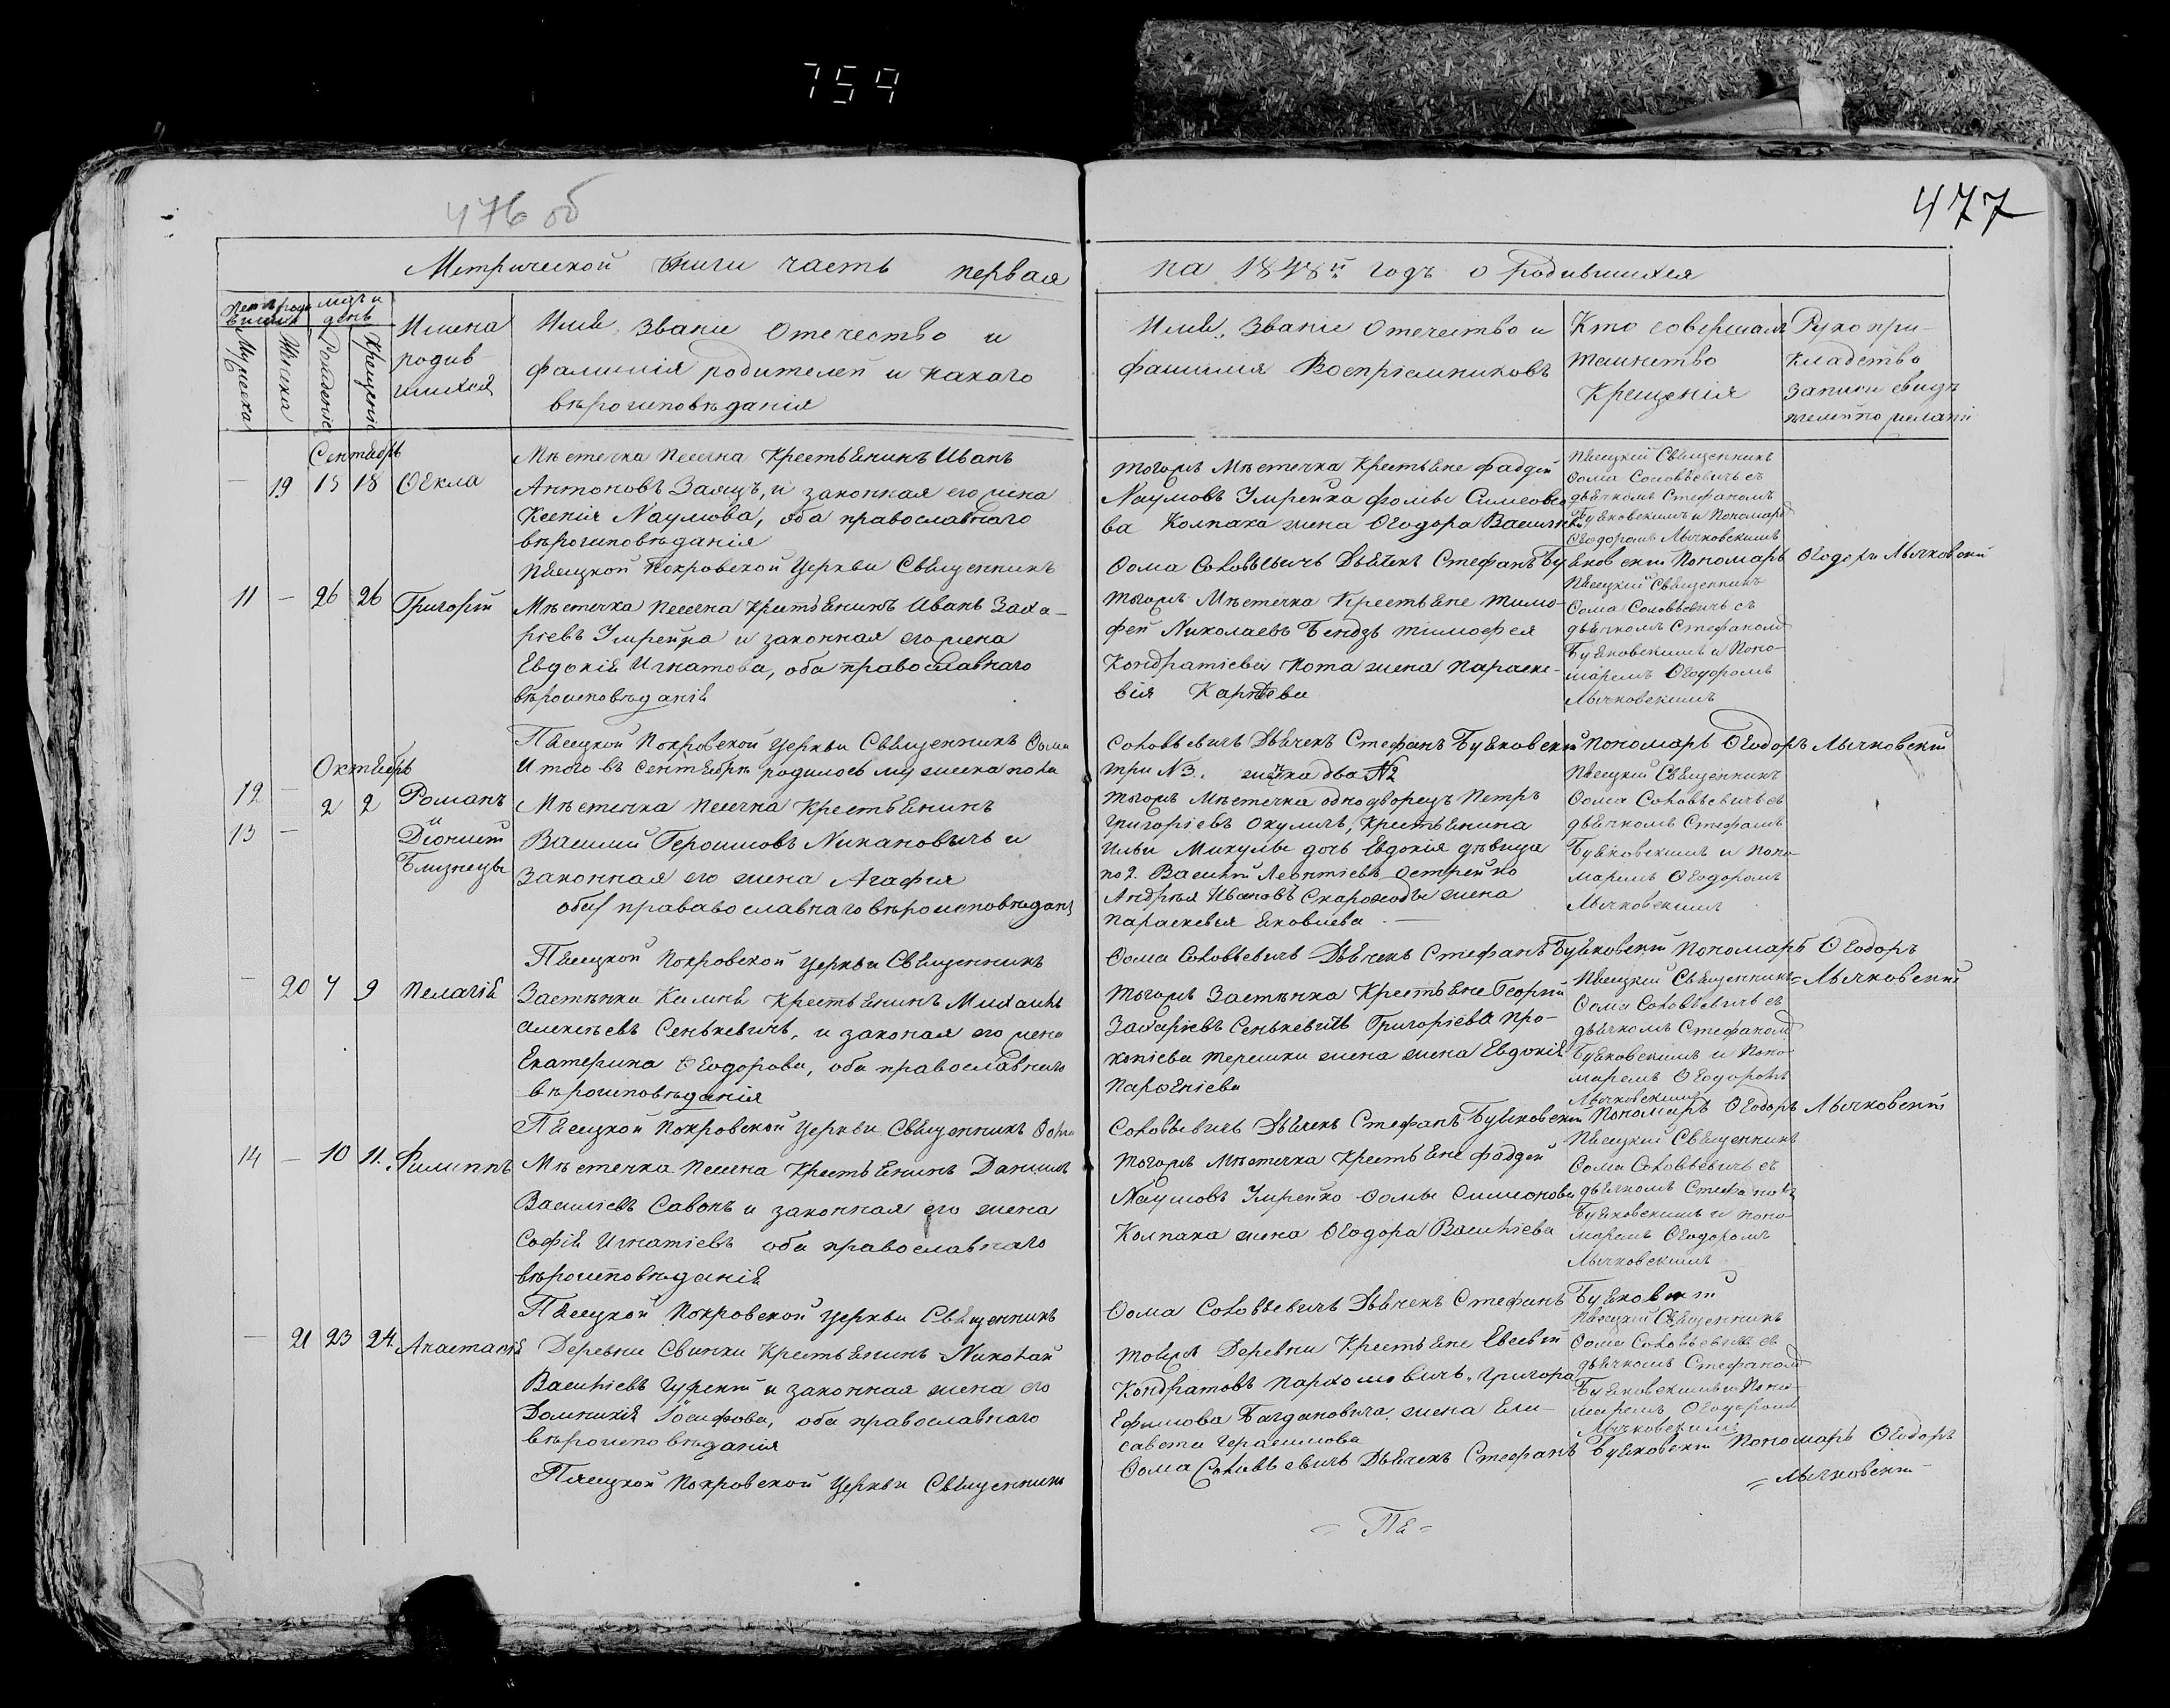 759
476 об
477
Метрической книги часть первая
на 1848й годъ о родившихся
мць и день
Мужеска
Женска
Рожденiе
Крещенiе
Имена
родив
шихся
Имя, званiе Отечество и
фамилiя родителей и какого
вѣроисповѣданiя
Имя, Званiе Отечество и
фамилия Воспрiемниковъ
Кто совершалъ
таинство
Крещенiя
Рукопри-
кладство
Записи свидѣ
Сентябрь
— 19 15 18 Ѳекла
Мѣстечка Песечна Крестьянинъ Иванъ
Антоновъ Заяцъ, и законная его жена
Ксенiя Наумова, оба православнаго
вѣроисповѣданiя
Тогожъ Мѣстечка Крестьяне Фаддей
Наумовъ Жмрейка
Колпака жена Ѳеодора
Пясецкiй Священникъ
Ѳома Соловьевичъ съ
дьячкомъ Стефаномъ
Буяковскимъ и Пономаре
Ѳеодоромъ Лычковскимъ
Пясецкой Покровской Церкви Священникъ
Ѳома Соловьевичъ Дьячекъ Стефанъ Буяковскiй Пономарь Ѳеодоръ Лычковскiй
11 — 26 26 Григорiй
Мѣстечка Песечна Крестьянинъ Иванъ Заха-
рiевъ Жмрейка и законная его жена
Евдокiя Игнатова, оба православнаго
вѣроисповѣданiя
Тогожъ Мѣстечка Крестьяне Тимо-
фей Николаевъ Бендзь Тимофея
Кондратiева Кота жена Параске-
вiя
Пясецкiй Священникъ
Ѳома Соловьевичъ съ
дьячкомъ Стефаномъ
Буяковскимъ и Поно-
маремъ Ѳеодоромъ
Лычковскимъ
Пясецкой Покровской Церкви Священникъ Ѳома
Соловьевичъ Дьячекъ Стефанъ Буяковскiй Пономарь Ѳеодоръ Лычковскiй
Итого въ Сентябрѣ родилось мужеска пола
три №3. женска два №2
Октябрь
12 — 2 2 Романъ
и
13 —
Близнецы
Мѣстечка Песечна Крестьянинъ
Василий Герасимовъ Никановичъ и
Законная его жена Агафия
оба прававославнаго вѣроисповѣданя
Тогожъ Мѣстечка однодворецъ Петръ
Григорiевъ Окуличъ, Крестьянина
Ильи Микулы дочь Евдокiя дѣвица
по 2. Василiй Леонтiевъ Острейко
Андрѣя Ивановъ Скарохода жена
Параскевья Яковлева
Пясецкiй Священникъ
Ѳома Соловьевичъ съ
дьячкомъ Стефаномъ
Буяковскимъ и Поно-
маремъ Ѳеодоромъ
Лычковскимъ
Пясецкой Покровской Церкви Священникъ
Ѳома Соловьевичъ Дьячекъ Стефанъ Буяковскiй Пономарь Ѳеодоръ
= Лычковскiй
— 20 7 9 Пелагiя
Застѣнка Крестьянинъ Михаилъ
Алексѣевъ Сенькевичъ, и законая его жена
Екатерина Ѳеодорова, оба православнаго
вѣроисповѣданiя
Тогожъ Застѣнка Крестьяне Георгiй
Захарiевъ Сенькевичъ Григорiева Про-
копiева Терешки жена жена Евдокiя
Парѳенiева
Пясецкiй Священникъ
Ѳома Соловьевичъ съ
дьячкомъ Стефаномъ
Буяковскимъ и Поно-
маремъ Ѳеодоромъ
Лычковскимъ
Пясецкой Покровской Церкви Священникъ Ѳома
Соловьевичъ Дьячекъ Стефанъ Буяковскiй Пономарь Ѳеодоръ Лычковскiй
14 — 10 11. Филиппъ
Мѣстечка Песечна Крестьянинъ Данiилъ
Василiевъ Савонъ и законная его жена
Софiя Игнатiевъ оба православнаго
вѣроисповѣданiя
Тогожъ Мѣстечка Крестьяне Фаддей
Наумовъ Жмрейко Ѳомы Симонова
Колпака жена Ѳеодора Василiева
Пясецкiй Священникъ
Ѳома Соловьевичъ съ
дьячкомъ Стефаномъ
Буяковскимъ и Поно-
маремъ Ѳеодоромъ
Лычковскимъ
Пясецкой Покровской Церкви Священникъ
Ѳома Соловьевичъ Дьячекъ Стефанъ Буяковскiй
— 21 23 24. Анастасiя
Деревни Свинки Крестьянинъ Николай
Василiевъ и законная жена его
Домникiя Iосифова, оба православнаго
вѣроисповѣданiя
Тояжъ Деревни Крестьяне Евсевiй
Кондратовъ Пархомовичъ. Григора
Ефимова Багдановича жена Ели-
савета Герасимова
Пясецкiй Священникъ
Ѳома Соловьевичъ съ
дьячкомъ Стефаномъ
Буяковскимъ и Поно-
маремъ Ѳеодоромъ
Лычковскимъ
Пясецкой Покровской Церкви Священникъ
Ѳома Соловьевичъ Дьячекъ Стефанъ Буяковскiй Пономарь Ѳеодоръ
= Лычковскiй
= Пя =